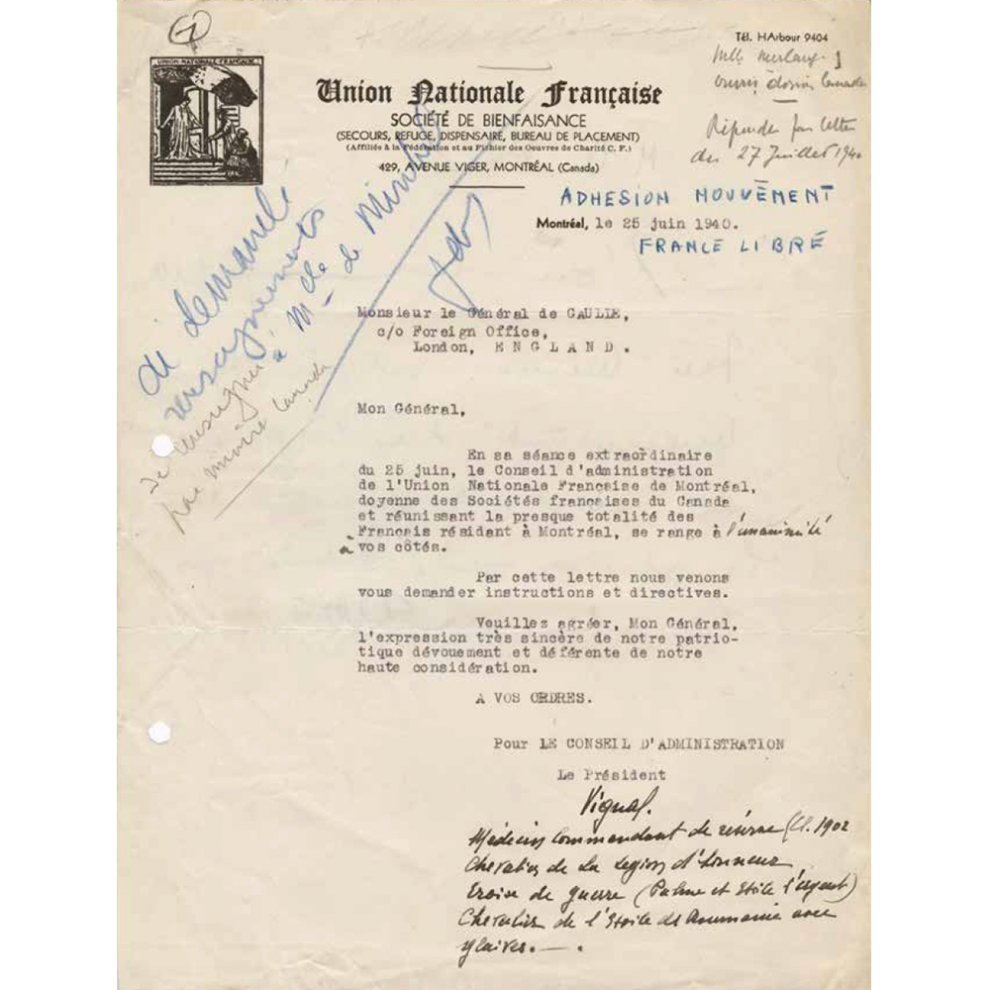 1
UNION NATIONALE FRANÇAISE
Tél. HArbour 9404
Melle
ouvrir dossier Canada
Répondu par lettre
du 27 Juillet 1940
Union Nationale Française
SOCIÉTÉ DE BIENFAISANCE
(SECOURS, REFUGE, DISPENSAIRE, BUREAU DE PLACEMENT)
(Affiliée à la Fédération et au Fichier des Oeuvres de Charité C. F.)
429, AVENUE VIGER, MONTRÉAL (Canada)
ADHESION MOUVÈMENT
Montréal, le 25 juin 1940.
FRANCE LIBRE
ai demandé
renseignements
à Mr de de Minh
Monsieur le Général de GAULLE,
c/o Foreign Office,
London, ENGLAND.
Mon Général,
En sa séance extraordinaire
du 25 juin, le Conseil d'administration
de l'Union Nationale Française de Montréal,
doyenne des Sociétés françaises du Canada
et réunissant la presque totalité des
Français résidant à Montréal, se range à l'unanimité
à vos côtés.
Par cette lettre nous venons
vous demander instructions et directives.
Veuilles agréer, Mon Général,
l'expression très sincère de notre patrio-
tique dévouement et déférente de notre
haute considération.
A VOS ORDRES.
Pour LE CONSEIL D'ADMINISTRATION
Le Président
Vignal.
Médecin Commandant de réserve (Cl. 1902
Chevalier de la Legion d'honneur
Croix de guerre (Palme et Etoile d'argent)
Chevalier de l'Etoile de Roumanie avec
glaives.